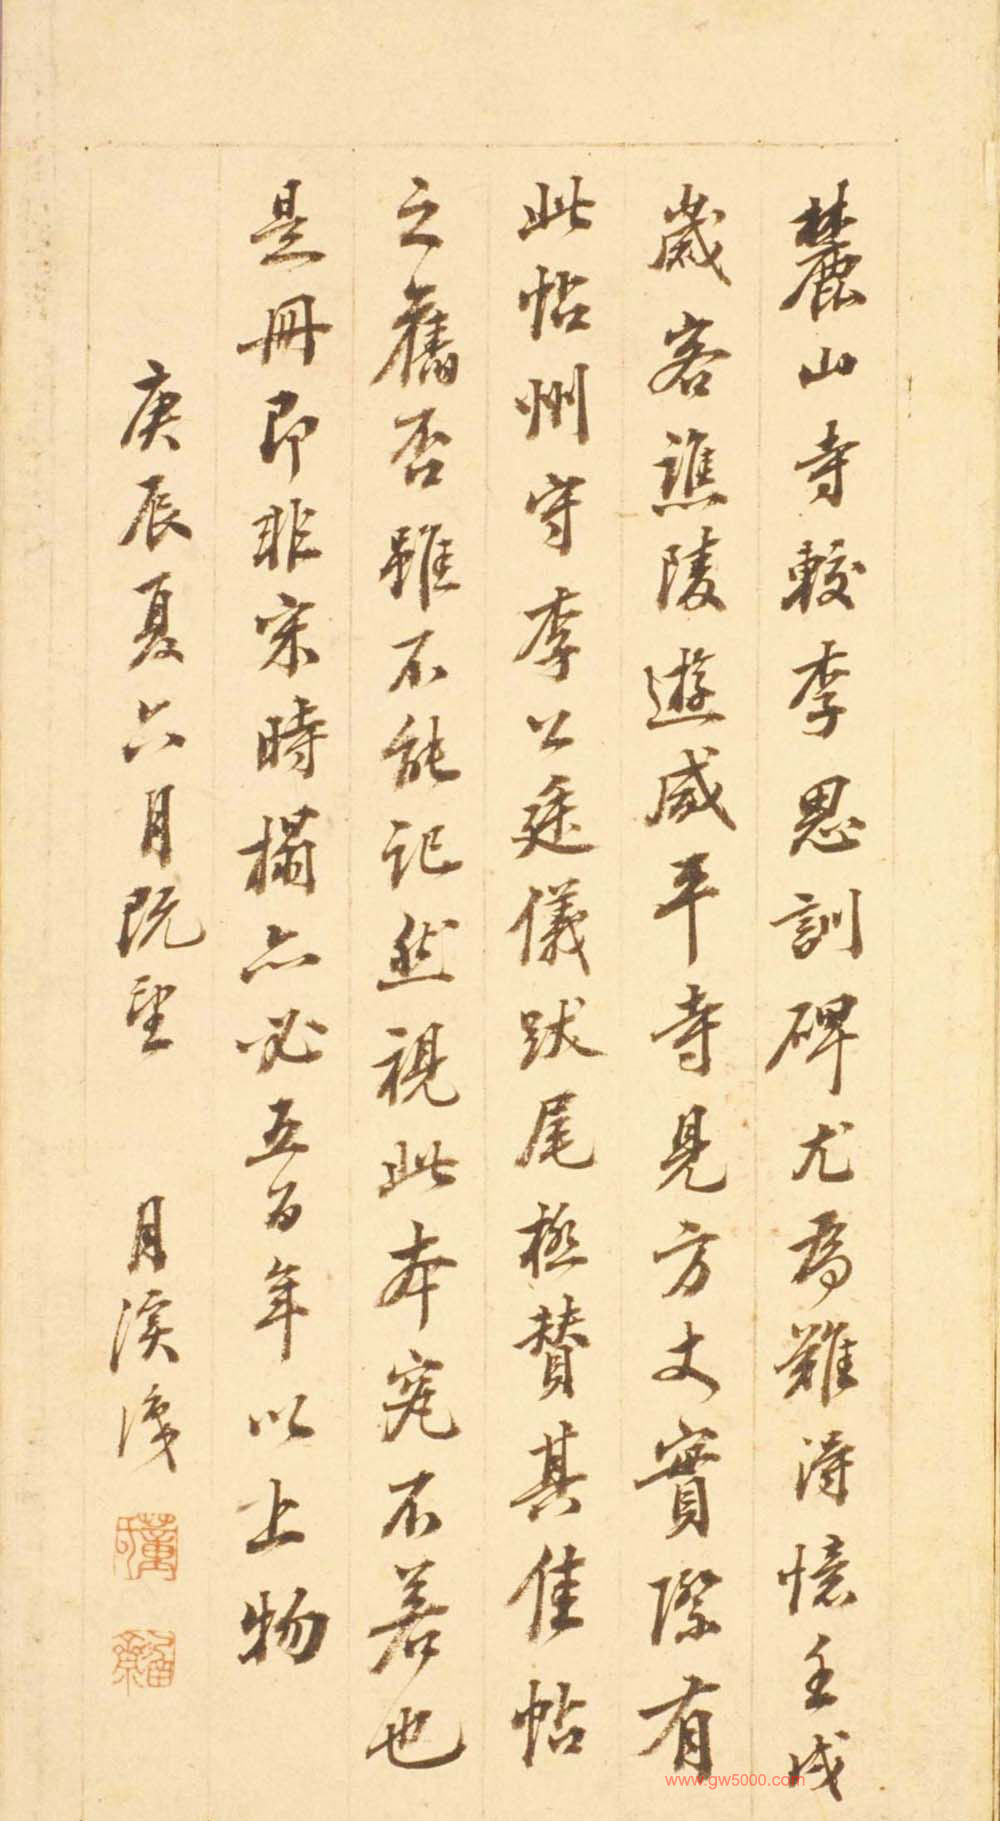 麓山寺較李思訓碑尤爲難得憶壬戌
歲客譙陵遊咸平寺見方丈實際有
此帖州守李公廷儀跋尾極賛其佳帖
之舊否雖不能記然視此本寔不若也
是冊即非宋時搨亦必五百年以上物
庚辰夏六月既望 月溪淺
董
www.gw5000.com